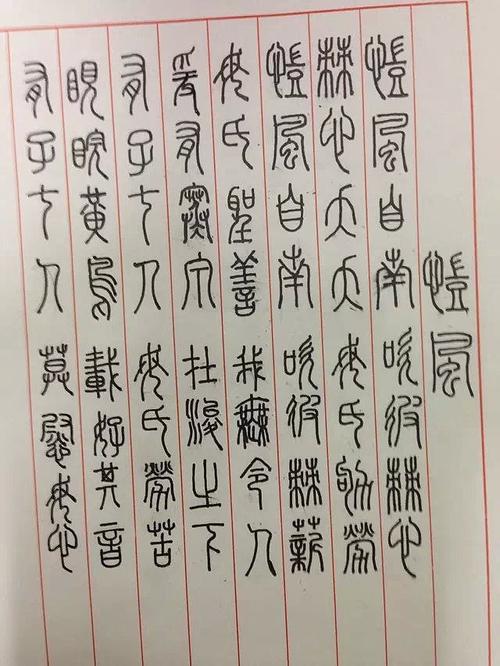 凱風
凱風自南吹彼棘心
棘心夭夭母氏劬勞
凱風自南吹彼棘薪
母氏聖善我無令人
爰有寒泉在浚之下
有子七人母氏勞苦
睍睆黃鳥載好其音
有子七人莫慰母心